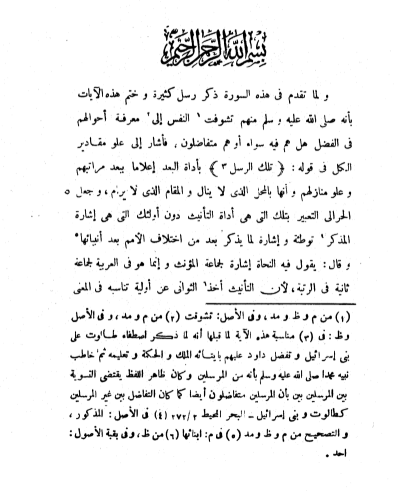 بسم الله الرحمن الرحيم
و لما تقدم فى هذه السورة ذكر رسل كثيرة و ختم هذه الآيات
بأنه صلى الله عليه و سلم منهم تشوفت ١ النفس إلى ٢ معرفة أحوالهم
فى الفضل هل هم فيه سواء أو هم متفاضلون، فأشار إلى علو مقادير
الكل فى قوله: ﴿ تلك الرسل ٣ ﴾ بأداة البعد إعلاما ببعد مراتبهم
و علو منازلهم و أنها بالمحل الذى لا ينال و المقام الذى لا يرام، و جعل ٥
الحرالى التعبير بتلك التى هى أداة التأنيث دون أولئك التى هى إشارة
المذكر ٤ توطئة و إشارة لما يذكر بعد من اختلاف الأمم بعد أنبيائها ٥
و قال: يقول فيه النحاة إشارة لجماعة المؤنث و إنما هو فى العربية لجماعة
ثانية فى الرتبة، لأن التأنيث أخذ ٦ الثوانى عن أولية تناسبه فى المعنى
(١) من م و ظ و مد، و فى الأصل: تشوقت (٢) من م و مد، و فى الأصل
و ظ: فى (٣) مناسبة هذه الآية لما قبلها أنه لما ذكر اصطفاء طالوت على
بنى إسرائيل و تفضل داود عليهم بايتائه الملك و الحكمة و تعليمه ثم خاطب
نبيه محمدا صلى الله عليه وسلم بأنه من المرسلين وكان ظاهر اللفظ يقتضى التسوية
بين المرسلين بين بأن المرسلين متفاضلون أيضا كما كان التفاضل بين غير المرسلين
كطالوت و بنى إسرائيل ــ البحر المحيط ٢ / ٢٧٢ (٤) فى الأصل: المذكور،
و التصحيح من م و ظ و مد (٥) فى م: ابنائها (٦) من ظ، و فى بقية الأصول:
احد .